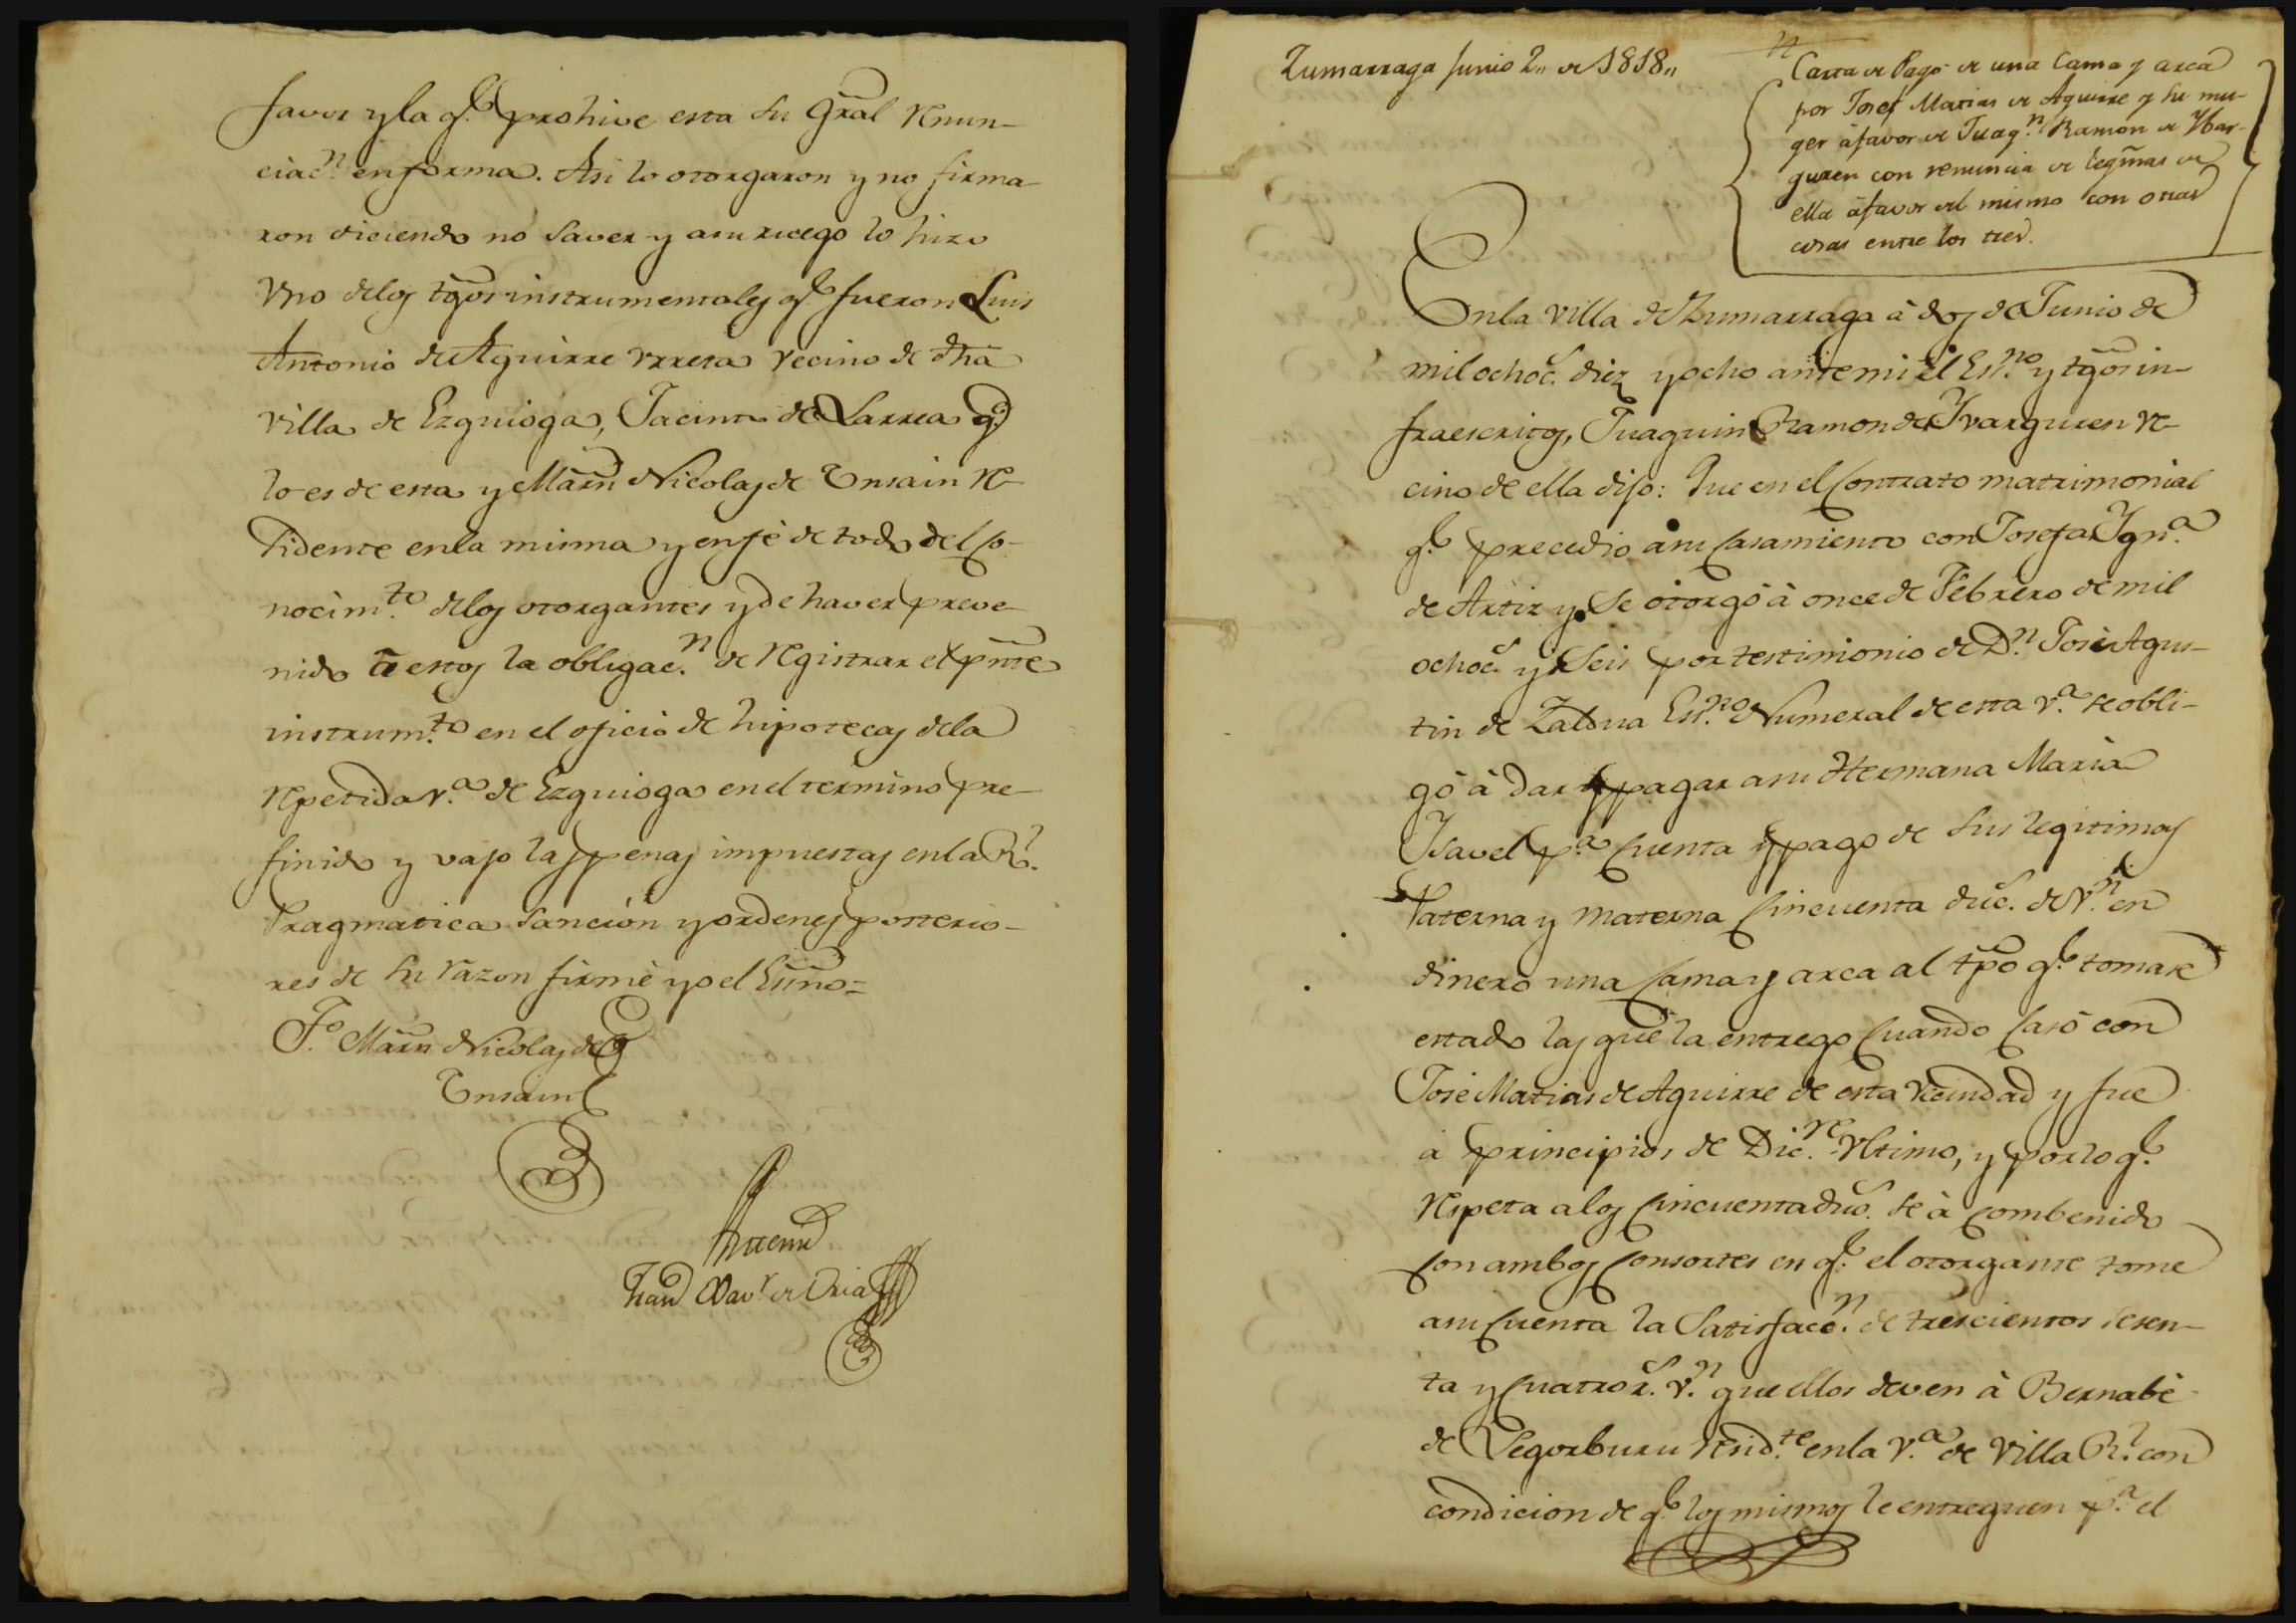 favor y la q.e prohive esta su Gral renun-
ciac.n en forma. Asi lo otorgaron y no firma-
ron diciendo no saver y a su ruego lo hizo
Vno delos tgos instrumentales q.e fueron Luis
Antonio de Aguirre Vrreta vecino de dha
villa de Ezquioga, Jacinto de Larrea q.e
lo es de esta y Marn Nicolas de Ensain re-
sidente en la misma y en fe de todo del co-
nocim.to delos otorgantes y de haver preve-
nido a estos la obligac.n de registrar el pnte
instrum.to en el oficio de hipotecas dela
repetida v.a de Ezquioga en el termino pre-
finido y vajo las penas impuestas en la R.l
Pragmatica Sanción y ordenes posterio-
res de su razon firmè yo el Essno=
F.o Marn Nicolas de
Ensain
Antemi
Fran Xav.r de Oria
Zumarraga Junio 2,, de 1818,,
Carta de Pago de una Cama y arca
por Josef Matias de Aguirre y su mu-
ger à favor de Juaq.n Ramon de Ybar-
guren con renuncia de legmas de
ella à favor del mismo con otras
cosas entre los tres.
En la villa de Zumarraga à dos de Junio de
mil ochoc.s diez y ocho antemi el Es.no y tgos in-
fraescritos, Juaquin Ramon de Yvarguren ve-
cino de ella dijo: Que en el Contrato matrimonial
q.e precedio a su casamiento con Josefa Ygn.a
de Artiz y se otorgò à once de Febrero de mil
ochoc.s y seis por testimonio de D.n José Agus-
tin de Zaldua Es.no Numeral de esta v.a se obli-
gò à dar y pagar a su Hermana Maria
Ysavel p.a cuenta y pago de sus legitimas
Paterna y materna Cincuenta duc.s de v.n en
dinero una Cama y arca al tpo q.e tomase
estado las que la entrego Cuando Casò con
José Matias de Aguirre de esta vecindad y fue
à principios de Dic.re Vltimo, y por lo q.e
respeta a los Cincuenta duc.s se à combenido
con ambos Consortes en q.e el otorgante tome
a su Cuenta la Satisfacc.n de trescientos sesen-
ta y Cuatro r.s v.n que ellos deven à Bernabè
de Legorburu resid.te en la v.a de Villa R.l con
condicion de q.e los mismos le entreguen p.a el